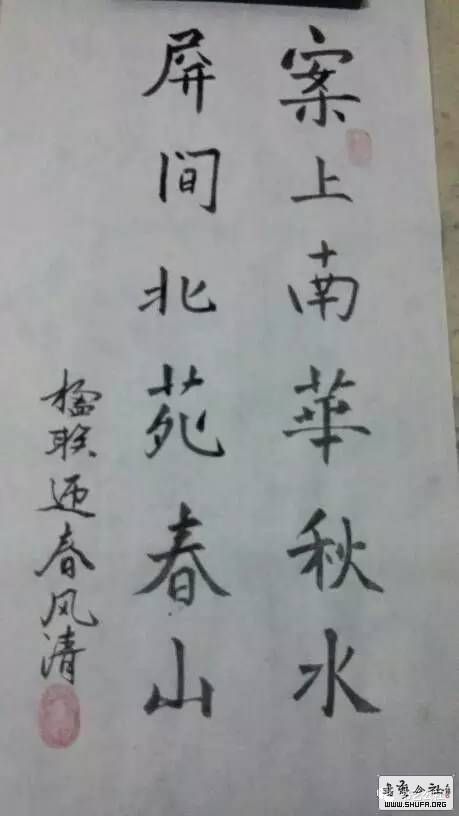 案上南華秋水
屏间北苑春山
楹联迎春风清
WWW.SHUFA.ORG